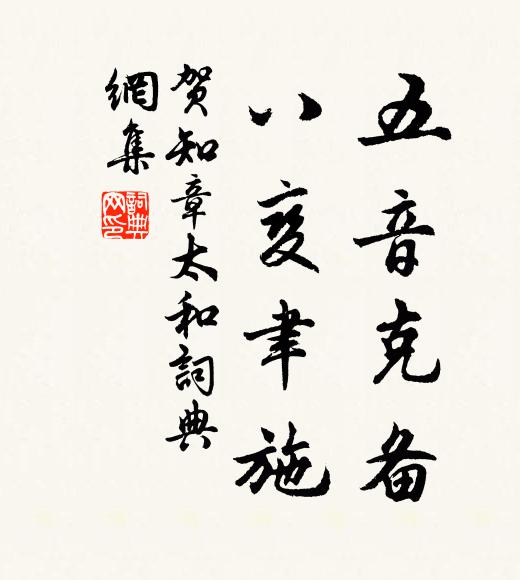 五音克备
八变聿施
贺知章太和詞典
網集
詞典
网印